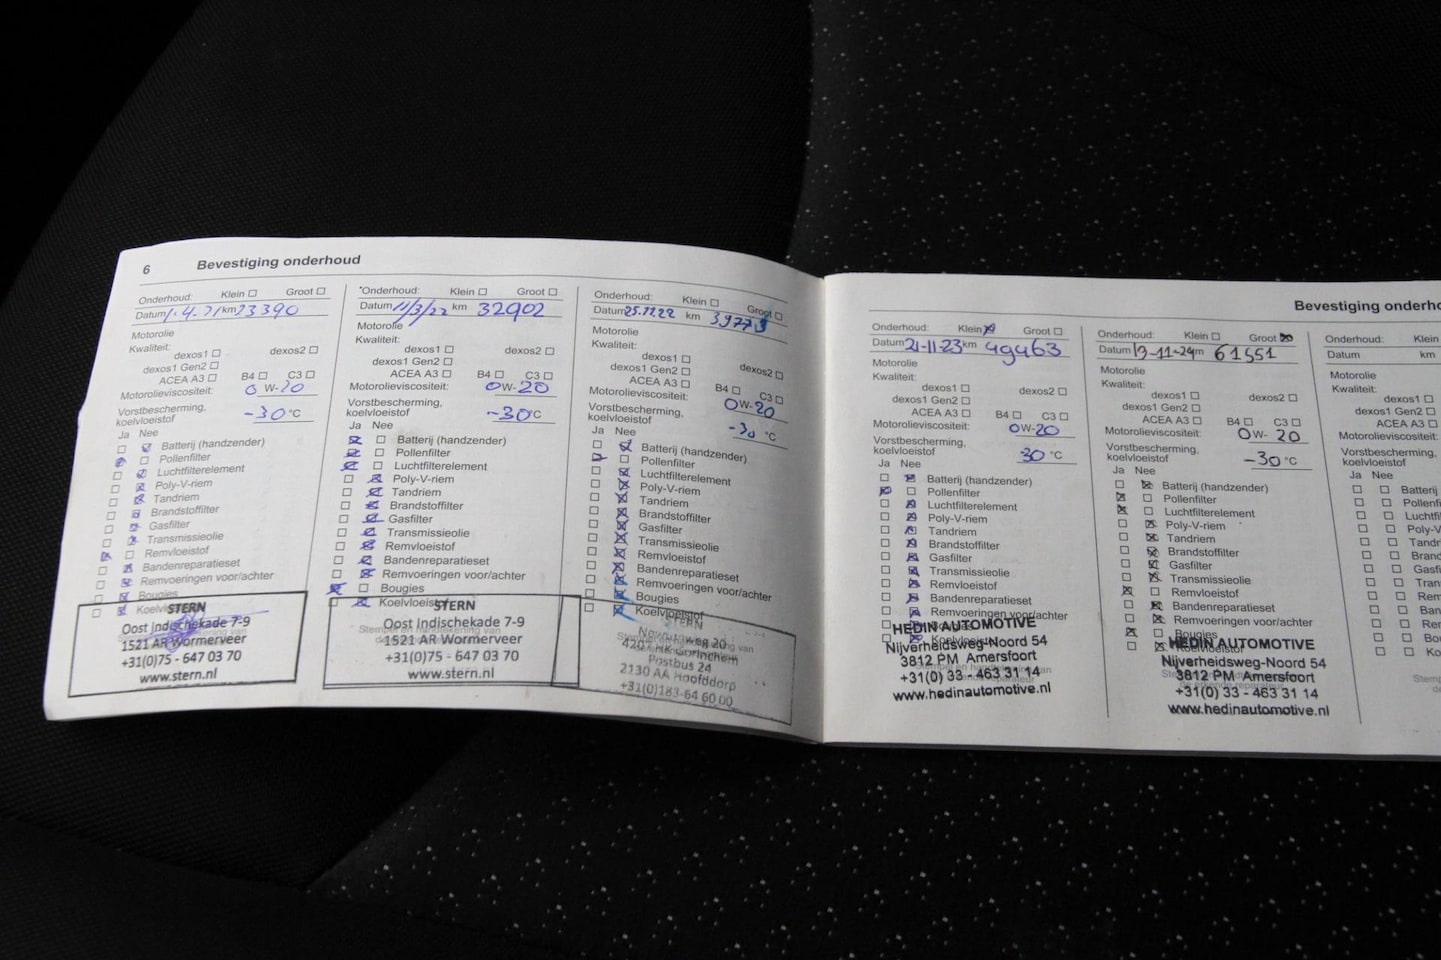 6 Bevestiging onderhoud
Onderhoud: Klein ☐ Groot ☐
Datum 1.4.21 km 23390
Motorolie
Kwaliteit:
dexos1 ☐ dexos2 ☐
dexos1 Gen2 ☐
ACEA A3 ☐ B4 ☐ C3 ☐
Motorolieviscositeit: 0 W-20
Vorstbescherming,
koelvloeistof -30 °C
Ja Nee
☐ ☒ Batterij (handzender)
☒ ☐ Pollenfilter
☐ ☒ Luchtfilterelement
☐ ☒ Poly-V-riem
☐ ☒ Tandriem
☐ ☒ Brandstoffilter
☐ ☒ Gasfilter
☐ ☒ Transmissieolie
☒ ☐ Remvloeistof
☐ ☒ Bandenreparatieset
☐ ☒ Remvoeringen voor/achter
☐ ☒ Bougies
☐ ☒ Koelvloeistof
STERN
Oost Indischekade 7-9
1521 AR Wormerveer
+31(0)75 - 647 03 70
www.stern.nl
Onderhoud: Klein ☐ Groot ☐
Datum 11/3/22 km 32902
Motorolie
Kwaliteit:
dexos1 ☐ dexos2 ☐
dexos1 Gen2 ☐
ACEA A3 ☐ B4 ☐ C3 ☐
Motorolieviscositeit: 0W-20
Vorstbescherming,
koelvloeistof -30°C
Ja Nee
☒ ☐ Batterij (handzender)
☒ ☐ Pollenfilter
☒ ☐ Luchtfilterelement
☐ ☒ Poly-V-riem
☐ ☒ Tandriem
☐ ☒ Brandstoffilter
☐ ☒ Gasfilter
☐ ☒ Transmissieolie
☐ ☒ Remvloeistof
☐ ☒ Bandenreparatieset
☐ ☒ Remvoeringen voor/achter
☒ ☐ Bougies
☐ ☒ Koelvloeistof
STERN
Stempel en handtekening van
Oost Indischekade 7-9
1521 AR Wormerveer
+31(0)75 - 647 03 70
www.stern.nl
Onderhoud: Klein ☐ Groot ☐
Datum 25.11.22 km 39779
Motorolie
Kwaliteit:
dexos1 ☐ dexos2 ☐
dexos1 Gen2 ☐
ACEA A3 ☐ B4 ☐ C3 ☐
Motorolieviscositeit: 0W-20
Vorstbescherming,
koelvloeistof -30 °C
Ja Nee
☐ ☒ Batterij (handzender)
☒ ☐ Pollenfilter
☐ ☒ Luchtfilterelement
☐ ☒ Poly-V-riem
☐ ☒ Tandriem
☐ ☒ Brandstoffilter
☐ ☒ Gasfilter
☐ ☒ Transmissieolie
☐ ☒ Remvloeistof
☐ ☒ Bandenreparatieset
☐ ☒ Remvoeringen voor/achter
☐ ☒ Bougies
☐ ☒ Koelvloeistof
STERN
20
Gorinchem
Postbus 24
2130 AA Hoofddorp
+31(0)183-64 60 00
Bevestiging onderho
Onderhoud: Klein ☒ Groot ☐
Datum 21-11-23 km 49463
Motorolie
Kwaliteit:
dexos1 ☐ dexos2 ☐
dexos1 Gen2 ☐
ACEA A3 ☐ B4 ☐ C3 ☐
Motorolieviscositeit: 0W-20
Vorstbescherming,
koelvloeistof 30 °C
Ja Nee
☐ ☒ Batterij (handzender)
☒ ☐ Pollenfilter
☐ ☒ Luchtfilterelement
☐ ☒ Poly-V-riem
☐ ☒ Tandriem
☐ ☒ Brandstoffilter
☐ ☒ Gasfilter
☐ ☒ Transmissieolie
☐ ☒ Remvloeistof
☐ ☒ Bandenreparatieset
☐ ☒ Remvoeringen voor/achter
HEDIN AUTOMOTIVE
Nijverheidsweg-Noord 54
3812 PM Amersfoort
+31(0) 33 - 463 31 14
www.hedinautomotive.nl
Onderhoud: Klein ☐ Groot ☒
Datum 19-11-24 km 61551
Motorolie
Kwaliteit:
dexos1 ☐ dexos2 ☐
dexos1 Gen2 ☐
ACEA A3 ☐ B4 ☐ C3 ☐
Motorolieviscositeit: 0W-20
Vorstbescherming,
koelvloeistof -30°C
Ja Nee
☐ ☒ Batterij (handzender)
☒ ☐ Pollenfilter
☒ ☐ Luchtfilterelement
☐ ☒ Poly-V-riem
☐ ☒ Tandriem
☐ ☒ Brandstoffilter
☐ ☒ Gasfilter
☐ ☒ Transmissieolie
☒ ☐ Remvloeistof
☐ ☒ Bandenreparatieset
☐ ☒ Remvoeringen voor/achter
☒ ☐ Bougies
☐ ☒ Koelvloeistof
HEDIN AUTOMOTIVE
Nijverheidsweg-Noord 54
3812 PM Amersfoort
+31(0) 33 - 463 31 14
www.hedinautomotive.nl
Onderhoud: Klein
Datum km
Motorolie
Kwaliteit:
dexos1
dexos1 Gen2
ACEA A3
Motorolieviscositeit:
Vorstbescherming,
koelvloeistof
Ja Nee
☐ ☐ Batterij
☐ ☐ Pollenf
☐ ☐ Luchtfi
☐ ☐ Poly-V
☐ ☐ Tandr
☐ ☐ Branc
☐ ☐ Gasfi
☐ ☐ Trans
☐ ☐ Rem
☐ ☐ Ban
☐ ☐ Rem
☐ ☐ Bou
☐ ☐ Ko
Stemp